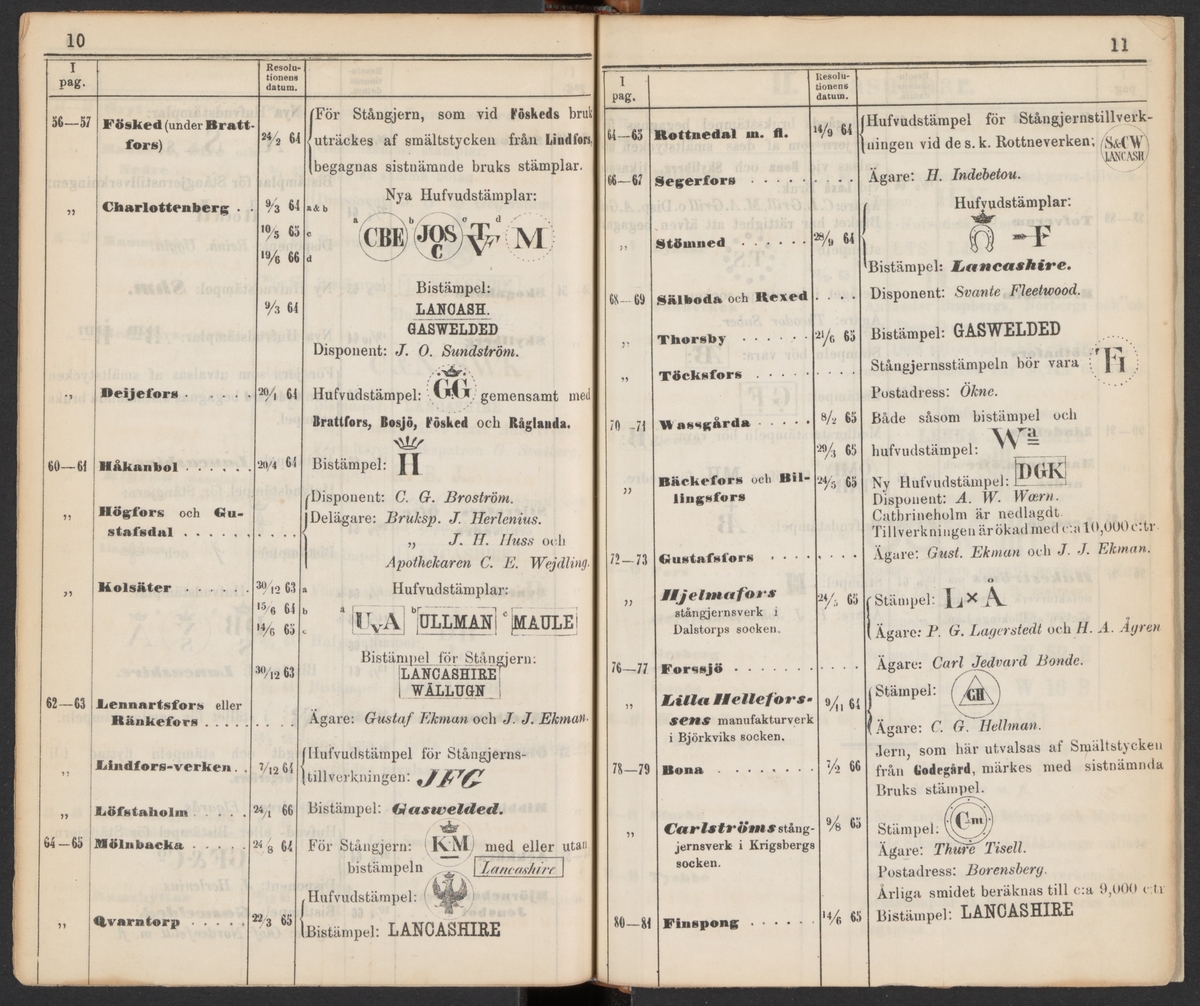 10
I
pag.
Resolu-
tionens
datum.
56—57 Fösked (under Bratt-
fors) 24/2 64
För Stångjern, som vid Föskeds bruk
uträckes af smältstycken från Lindfors,
begagnas sistnämnde bruks stämplar.
Nya Hufvudstämplar:
„ Charlottenberg . . 9/3 64 a & b
10/5 65 c
19/6 66 d
a CBE b JOS C c d M
Bistämpel:
9/3 64 LANCASH.
GASWELDED
Disponent: J. O. Sundström.
„ Deijefors . . . . . . 20/1 64 Hufvudstämpel: GG gemensamt med
Brattfors, Bosjö, Fösked och Råglanda.
60—61 Håkanbol . . . . . . 20/4 64 Bistämpel: H
„ Högfors och Gu-
stafsdal . . . . . . . . . .
Disponent: C. G. Broström.
Delägare: Bruksp. J. Herlenius.
„ J. H. Huss och
Apothekaren C. E. Wejdling.
„ Kolsäter . . . . . . 30/12 63 a Hufvudstämplar:
15/6 64 b
14/6 65 c
a UvA b ULLMAN c MAULE
Bistämpel för Stångjern:
30/12 63 LANCASHIRE
WÄLLUGN
62—63 Lennartsfors eller
Ränkefors . . . . . . . . Ägare: Gustaf Ekman och J. J. Ekman.
„ Lindfors-verken . . 7/12 64
Hufvudstämpel för Stångjerns-
tillverkningen: JFG
„ Löfstaholm . . . . . 24/1 66 Bistämpel: Gaswelded.
64—65 Mölnbacka . . . . . 24/8 64 För Stångjern: KM med eller utan
bistämpeln Lancashire
Hufvudstämpel:
„ Qvarntorp . . . . . 22/3 65
Bistämpel: LANCASHIRE
11
I
pag.
Resolu-
tionens
datum.
64—65 Rottnedal m. fl. 14/9 64
Hufvudstämpel för Stångjernstillverk-
ningen vid de s. k. Rottneverken; S&CW LANCASH
66—67 Segerfors . . . . . . . . . . Ägare: H. Indebetou.
Hufvudstämplar:
„ Stömned . . . . . . 28/9 64 F
Bistämpel: Lancashire.
68—69 Sälboda och Rexed . . . . Disponent: Svante Fleetwood.
„ Thorsby . . . . . . 21/6 65 Bistämpel: GASWELDED
„ Töcksfors . . . . . . . . . . Stångjernsstämpeln bör vara
Postadress: Ökne.
70—71 Wassgårda . . . . . 8/2 65 Både såsom bistämpel och
29/3 65 hufvudstämpel: Wa
„ Bäckefors och Bil-
lingsfors 24/5 65 Ny Hufvudstämpel: DGK
Disponent: A. W. Wærn.
Cathrineholm är nedlagdt.
Tillverkningen är ökad med c:a 10,000 c:tr.
72—73 Gustafsfors . . . . . . . . Ägare: Gust. Ekman och J. J. Ekman.
„ Hjelmafors
stångjernsverk i
Dalstorps socken. 24/5 65
Stämpel: L×Å
Ägare: P. G. Lagerstedt och H. A. Ågren
76—77 Forssjö . . . . . . . . . . . Ägare: Carl Jedvard Bonde.
„ Lilla Hellefors-
sens manufakturverk
i Björkviks socken. 9/11 64
Stämpel: CH
Ägare: C. G. Hellman.
78—79 Bona . . . . . . . . 7/2 66
Jern, som här utvalsas af Smältstycken
från Godegård, märkes med sistnämnda
Bruks stämpel.
„ Carlströms stång-
jernsverk i Krigsbergs
socken. 9/8 65
Stämpel: C m
Ägare: Thure Tisell.
Postadress: Borensberg.
Årliga smidet beräknas till c:a 9,000 c:tr
80—81 Finspong . . . . . . 14/6 65 Bistämpel: LANCASHIRE